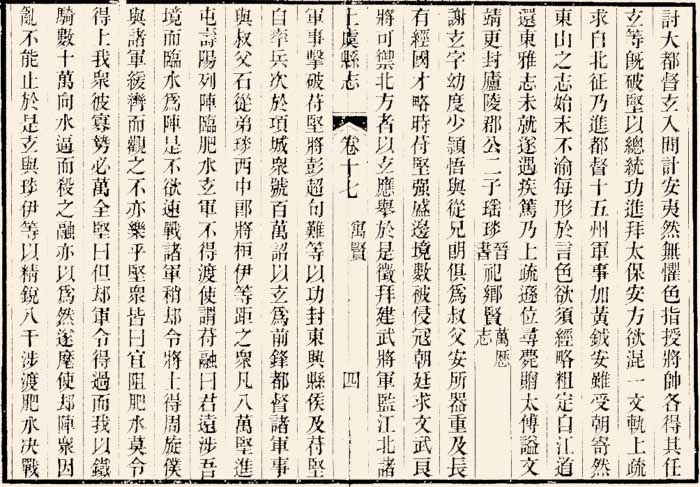 討大都督玄入問計安夷然無懼色指授將帥各得其任
玄等旣破堅以總統功進拜太保安方欲混一文軌上疏
求自北征乃進都督十五州軍事加黃鉞安雖受朝寄然
東山之志始末不渝每形於言色欲須經略粗定自江道
還東雅志未就遂遇疾篤乃上疏遜位尋薨贈太傅謚文
靖更封廬陵郡公二子瑤琰晉書祀鄉賢萬歷志
謝玄字幼度少頴悟與從兄朗俱爲叔父安所器重及長
有經國才略時苻堅强盛邊境數被侵冦朝廷求文武良
將可禦北方者以玄應舉於是徵拜建武將軍監江北諸
上虞縣志 卷十七 寓賢 四
軍事擊破苻堅將彭超句難等以功封東興縣侯及苻堅
自率兵次於項城衆號百萬詔以玄爲前鋒都督諸軍事
與叔父石從弟琰西中郞將桓伊等距之衆凡八萬堅進
屯壽陽列陣臨肥水玄軍不得渡使謂苻融曰君遠涉吾
境而臨水爲陣是不欲速戰諸軍稍却令將士得周旋僕
與諸軍緩轡而觀之不亦樂乎堅衆皆曰宜阻肥水莫令
得上我衆彼寡勢必萬全堅曰但却軍令得過而我以鐵
騎數十萬向水逼而殺之融亦以爲然遂麾使却陣衆因
亂不能止於是玄與琰伊等以精銳八千涉渡肥水决戰